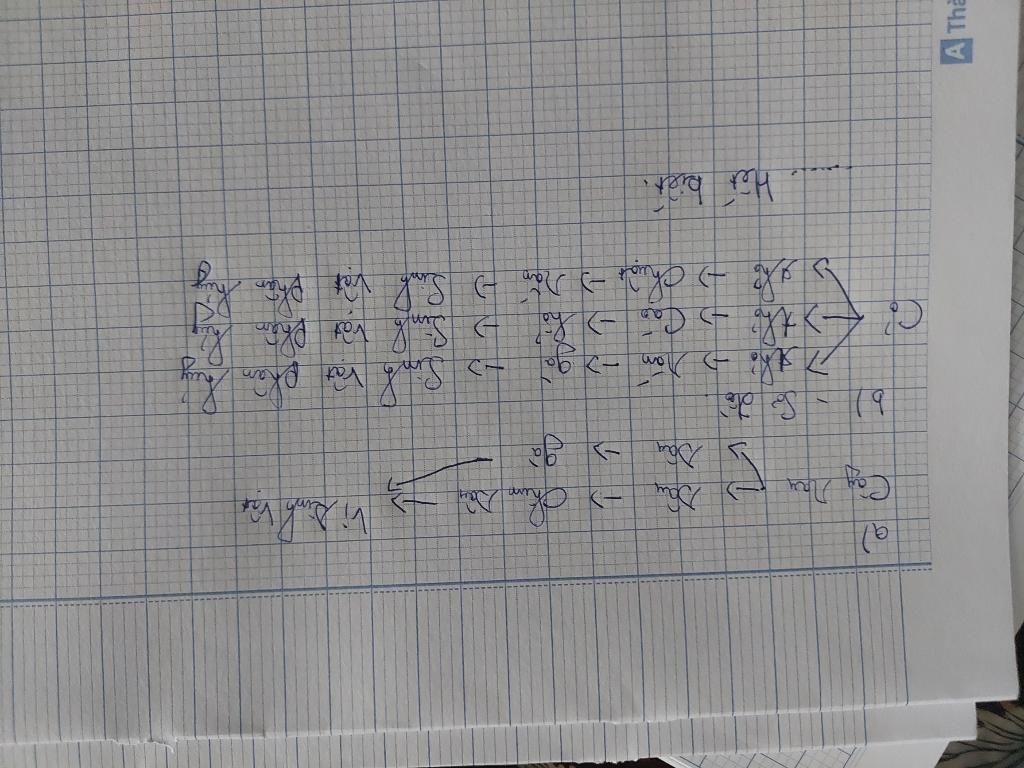 a)
Cây Dâu → Sâu → Chim Sâu → Vi Sinh Vật
→ Sâu → gà
b) - Sơ đồ:
→ thỏ → rắn → gà → Sinh Vật phân huỷ
Cỏ → thỏ → Cáo → hổ → Sinh Vật phân huỷ
→ thỏ → Chuột → rắn → Sinh Vật phân huỷ
...... Hết biết.
A Thà